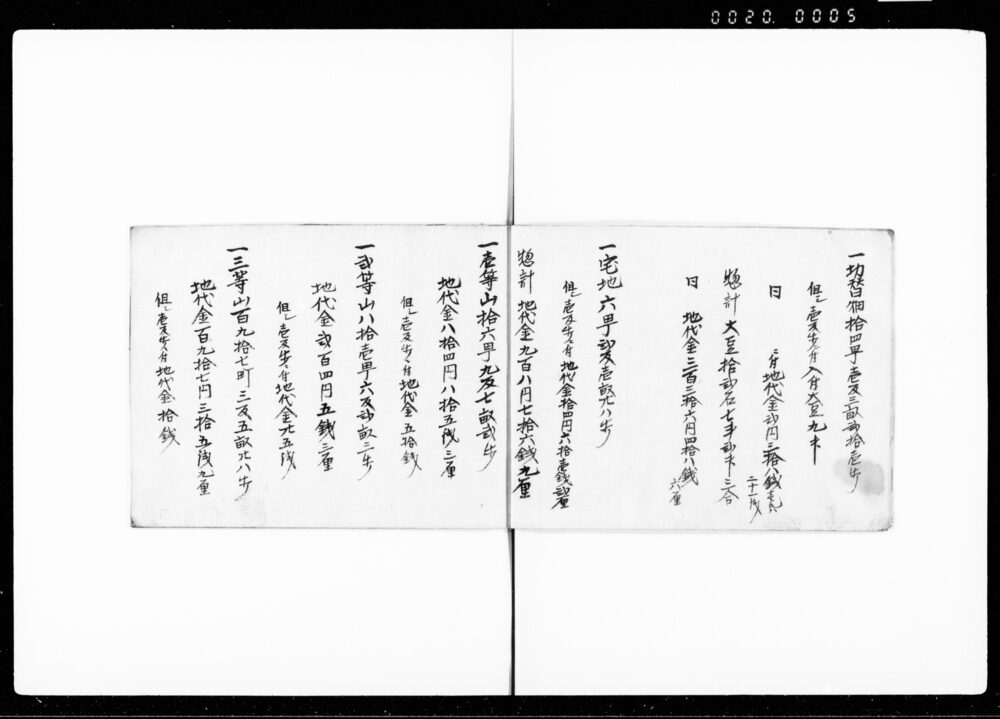 0020. 0005
一切替畑拾四町壱反三畝弐拾壱歩
但シ壱反歩ニ付入付大豆九斗
〃 ニ付地代金弐円三拾八銭
惣計 大豆拾弐石七斗弐升三合
〃 地代金三百三拾六円四拾八銭
六厘
一宅地六町弐反壱畝廿八歩
但シ壱反歩ニ付地代金拾四円六拾壱銭弐厘
惣計 地代金九百八円七拾六銭九厘
一壱等山拾六町九反七畝弐歩
地代金八拾四円八拾五銭三厘
但シ壱反歩ニ付地代金五拾銭
一弐等山八拾壱町六反弐畝三歩
地代金弐百四円五銭三厘
但シ壱反歩ニ付地代金廿五銭
一三等山百九拾七町三反五畝廿八歩
地代金百九拾七円三拾五銭九厘
但シ壱反歩ニ付地代金拾銭